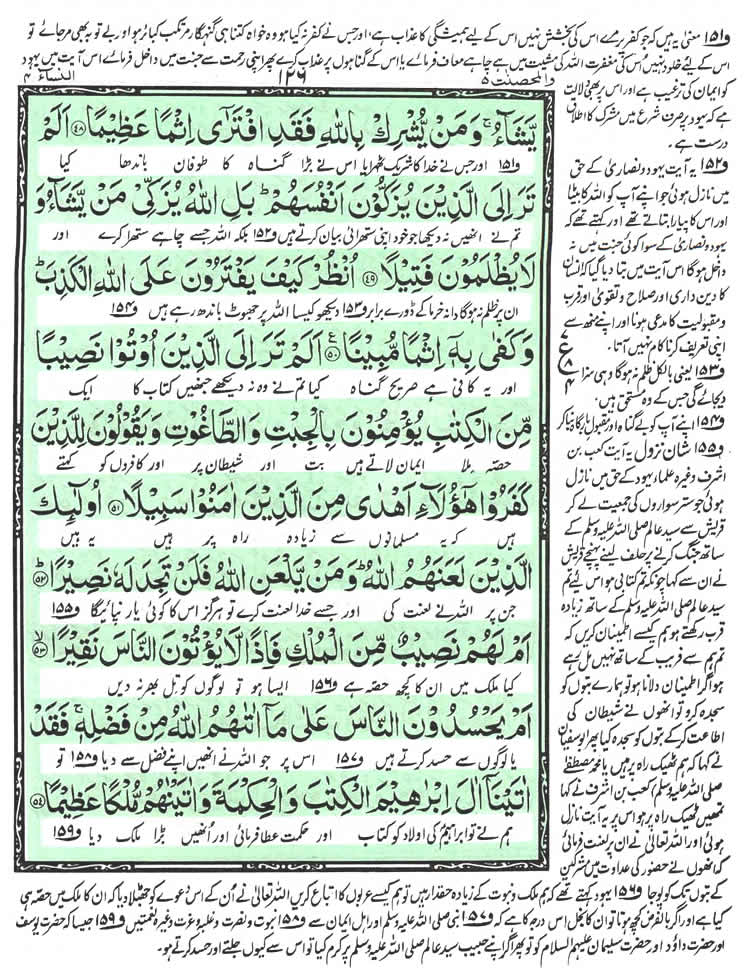 و۱۵۱ معنی یہ ہیں کہ جو کفر پر مرے اس کی بخشش نہیں اس کے لیے ہمیشگی کا عذاب ہے، اور جس نے کفر نہ کیا ہو وہ خواہ کتنا ہی گنہگار مرتکب کبائر ہو اور بے توبہ بھی مر جائے تو
اس کے لئے خلود نہیں، اس کی مغفرت اللہ کی مشیت میں ہے چاہے معاف فرمائے یا اس کے گناہوں پر عذاب کرے پھر اپنی رحمت سے جنت میں داخل فرمائے اس آیت میں یہود
کو ایمان کی ترغیب ہے اور اس پر بھی دلالت
ہے کہ یہود پر عرف شرع میں مشرک کا اطلاق
درست ہے۔
والمحصنت ۵
۱۲۶
النساء ۴
یَّشَآءُ ۚ وَمَنْ یُّشْرِكْ بِاللّٰهِ فَقَدِ افْتَرٰۤی اِثْمًا عَظِیْمًا ﴿۴۸﴾ اَلَمْ
و۱۵۱ اور جس نے خدا کا شریک ٹھہرایا اس نے بڑا گناہ کا طوفان باندھا کیا
تَرَ اِلَی الَّذِیْنَ یُزَكُّوْنَ اَنْفُسَهُمْ ؕ بَلِ اللّٰهُ یُزَكِّیْ مَنْ یَّشَآءُ وَ
تم نے انھیں نہ دیکھا جو خود اپنی ستھرائی بیان کرتے ہیں و۱۵۲ بلکہ اللہ جسے چاہے ستھرا کرے اور
لَا یُظْلَمُوْنَ فَتِیْلًا ﴿۴۹﴾ اُنْظُرْ كَیْفَ یَفْتَرُوْنَ عَلَی اللّٰهِ الْكَذِبَ ؕ
ان پر ظلم نہ ہوگا دانہ خرما کے ڈورے برابر و۱۵۳ دیکھو کیسا اللہ پر جھوٹ باندھ رہے ہیں و۱۵۴
وَكَفٰی بِهٖۤ اِثْمًا مُّبِیْنًا ﴿۵۰﴾ اَلَمْ تَرَ اِلَی الَّذِیْنَ اُوْتُوْا نَصِیْبًا
اور یہ کافی ہے صریح گناہ کیا تم نے وہ نہ دیکھے جنھیں کتاب کا ایک
مِّنَ الْكِتٰبِ یُؤْمِنُوْنَ بِالْجِبْتِ وَالطَّاغُوْتِ وَیَقُوْلُوْنَ لِلَّذِیْنَ
حصہ ملا ایمان لاتے ہیں بت اور شیطان پر اور کافروں کو کہتے
كَفَرُوْا هٰۤؤُلَآءِ اَهْدٰی مِنَ الَّذِیْنَ اٰمَنُوْا سَبِیْلًا ﴿۵۱﴾ اُولٰٓىِٕكَ
ہیں کہ یہ مسلمانوں سے زیادہ راہ پر ہیں یہ ہیں
الَّذِیْنَ لَعَنَهُمُ اللّٰهُ ؕ وَمَنْ یَّلْعَنِ اللّٰهُ فَلَنْ تَجِدَ لَهٗ نَصِیْرًا ﴿۵۲﴾
جن پر اللہ نے لعنت کی اور جسے خدا لعنت کرے تو ہرگز اس کا کوئی یار نہ پائیگا و۱۵۵
اَمْ لَهُمْ نَصِیْبٌ مِّنَ الْمُلْكِ فَاِذًا لَّا یُؤْتُوْنَ النَّاسَ نَقِیْرًا ﴿۵۳﴾
کیا ملک میں ان کا کچھ حصہ ہے و۱۵۶ ایسا ہو تو لوگوں کو تل بھر نہ دیں
اَمْ یَحْسُدُوْنَ النَّاسَ عَلٰی مَاۤ اٰتٰىهُمُ اللّٰهُ مِنْ فَضْلِهٖ ۚ فَقَدْ
یا لوگوں سے حسد کرتے ہیں و۱۵۷ اس پر جو اللہ نے انھیں اپنے فضل سے دیا و۱۵۸ تو
اٰتَیْنَاۤ اٰلَ اِبْرٰهِیْمَ الْكِتٰبَ وَالْحِكْمَةَ وَاٰتَیْنٰهُمْ مُّلْكًا عَظِیْمًا ﴿۵۴﴾
ہم نے تو ابراہیم کی اولاد کو کتاب اور حکمت عطا فرمائی اور اُنھیں بڑا ملک دیا و۱۵۹
و۱۵۲ یہ آیت یہود و نصاریٰ کے حق
میں نازل ہوئی جو اپنے آپ کو اللہ کا بیٹا
اور اس کا پیارا بتاتے تھے اور کہتے تھے کہ
یہود و نصاریٰ کے سوا کوئی جنت میں نہ
داخل ہوگا اس آیت میں بتا دیا گیا کہ انسان
کا دین داری اور صلاح و تقویٰ اور قرب
و مقبولیت کا مدعی ہونا اور اپنے منھ سے
اپنی تعریف کرنا کام نہیں آتا۔
ع
۴
و۱۵۳ یعنی بالکل ظلم نہ ہوگا وہی سزا
دیجائے گی جس کے وہ مستحق ہیں۔
و۱۵۴ اپنے آپ کو بے گناہ اور مقبول بارگاہ بتا کر
و۱۵۵ شان نزول یہ آیت کعب بن
اشرف وغیرہ علماء یہود کے حق میں نازل
ہوئی جو ستر سواروں کی جمعیت لے کر
قریش سے سید عالم صلی اللہ علیہ وسلم کے
ساتھ جنگ کرنے پر حلف لینے پہنچے قریش
نے ان سے کہا چونکہ تم کتابی ہو اس لیے تم
سید عالم صلی اللہ علیہ وسلم کے ساتھ زیادہ
قرب رکھتے ہو ہم کیسے اطمینان کریں کہ
تم ہم سے فریب کے ساتھ نہیں مل رہے
ہو اگر اطمینان دلانا ہو تو ہمارے بتوں کو
سجدہ کرو تو انھوں نے شیطان کی
اطاعت کر کے بتوں کو سجدہ کیا پھر ابوسفیان
نے کہا کہ ہم ٹھیک راہ پر ہیں یا محمد مصطفےٰ
صلی اللہ علیہ وسلم کعب بن اشرف نے کہا
تمھیں ٹھیک راہ پر ہو اس پر یہ آیت نازل
ہوئی اور اللہ تعالیٰ نے ان پر لعنت فرمائی
کہ انھوں نے حضور کی عداوت میں مشرکین
کے بتوں تک کو پوجا و۱۵۶ یہود کہتے تھے کہ ہم ملک و نبوت کے زیادہ حقدار ہیں تو ہم کیسے عربوں کا اتباع کریں اللہ تعالیٰ نے اُن کے اس دعوے کو جھٹلا دیا کہ ان کا ملک میں حصہ ہی
کیا ہے اور اگر بالفرض کچھ ہوتا تو ان کا بخل اس درجہ کا ہے کہ و۱۵۷ نبی صلی اللہ علیہ وسلم اور اہل ایمان سے و۱۵۸ نبوت و نصرت و غلبہ و عزت وغیرہ نعمتیں و۱۵۹ جیسا کہ حضرت یوسف
اور حضرت داؤد اور حضرت سلیمان علیہم السلام کو تو پھر اگر اپنے حبیب سید عالم صلی اللہ علیہ وسلم پر کرم کیا تو اس سے کیوں جلتے اور حسد کرتے ہو۔